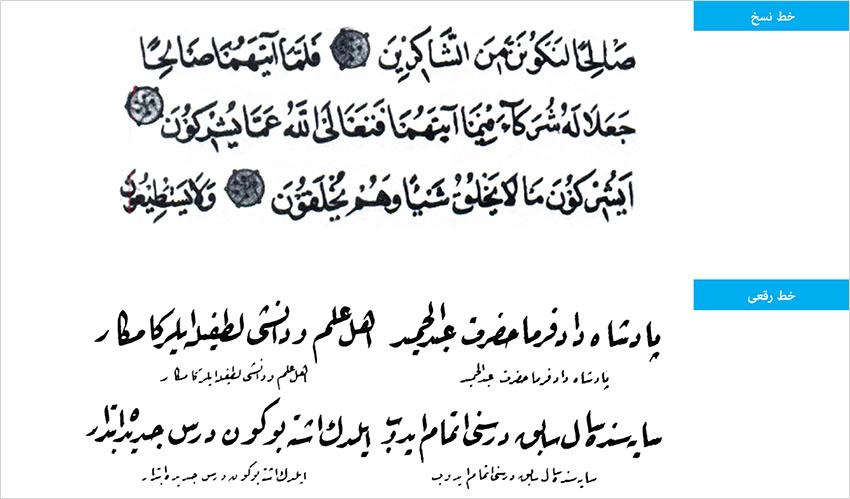 خط نسخ
صَالِحًا لَنَكُونَنَّ مِنَ الشَّاكِرِينَ فَلَمَّا آتَيهُمَا صَالِحًا
جَعَلَا لَهُ شُرَكَآءَ فِيمَا آتَيهُمَا فَتَعَالَى اللَّهُ عَمَّا يُشْرِكُونَ
اَيُشْرِكُونَ مَا لَا يَخْلُقُ شَيْئًا وَهُمْ يُخْلَقُونَ وَلَا يَسْتَطِيعُونَ
خط رقعی
پادشاه دادفرما حضرت عبدالحمید اهل علم و دانشی لطفیله ایلر کامکار
پادشاه دادفرما حضرت عبدالحمید اهل علم و دانشی لطفیله ایلر کامکار
سایه سنده سال سابق درسنی اتمام ایدوب ایلدك اشته بوكون درس جدیده ابتدار
سایه سنده سال سابق درسنی اتمام ایدوب ایلدك اشته بوكون درس جدیده ابتدار